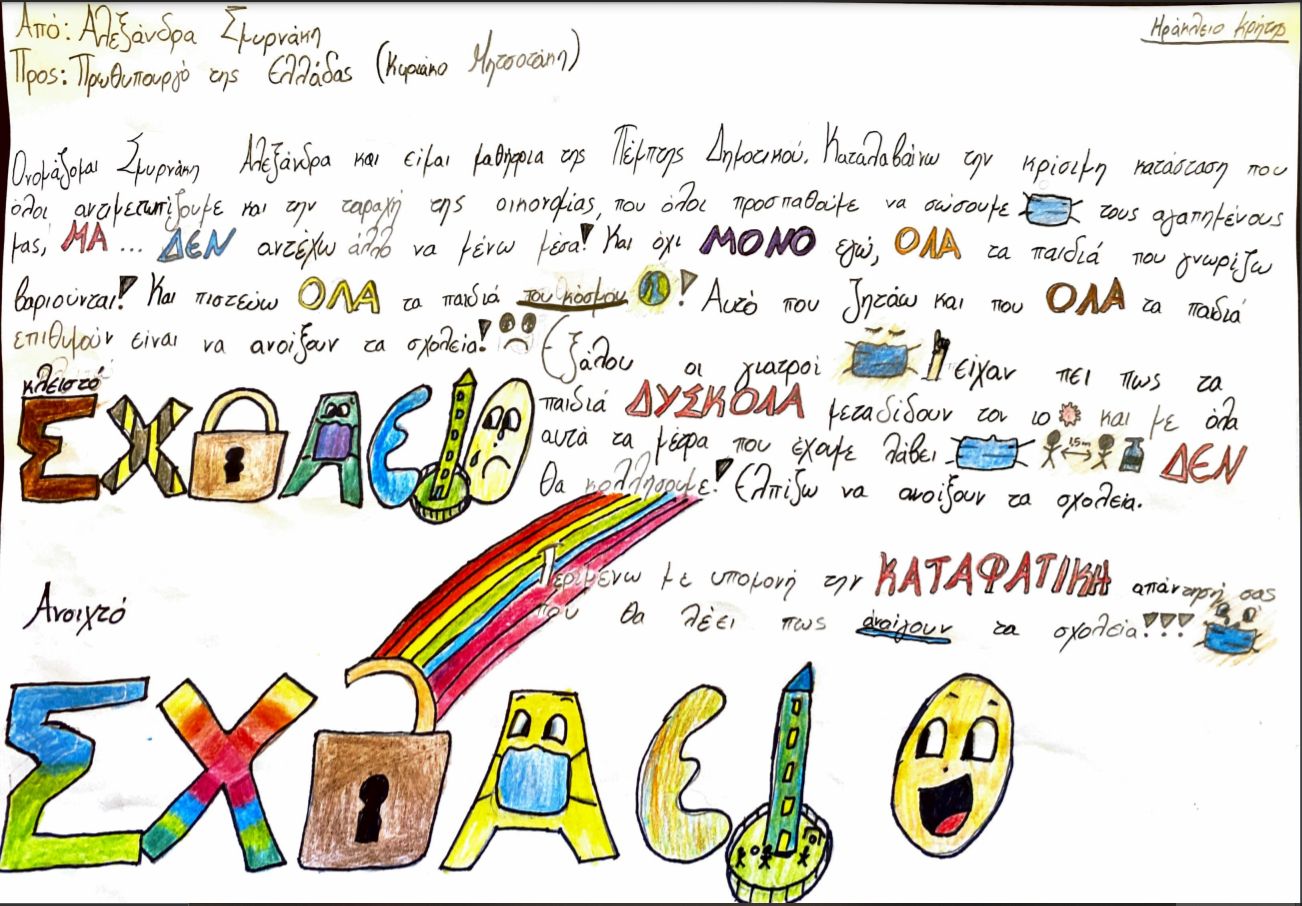 Από: Αλεξάνδρα Σμυρνάκη
Ηράκλειο Κρήτης
Προς: Πρωθυπουργό της Ελλάδας (Κυριάκο Μητσοτάκη)
Ονομάζομαι Σμυρνάκη Αλεξάνδρα και είμαι μαθήτρια της Πέμπτης Δημοτικού. Καταλαβαίνω την κρίσιμη κατάσταση που
όλοι αντιμετωπίζουμε και την ταραχή της οικονομίας, που όλοι προσπαθούμε να σώσουμε τους αγαπημένους
μας, ΜΑ ... ΔΕΝ αντέχω άλλο να μένω μέσα! Και όχι ΜΟΝΟ εγώ, ΟΛΑ τα παιδιά που γνωρίζω
βαριούνται! Και πιστεύω ΟΛΑ τα παιδιά του κόσμου! Αυτό που ζητάω και που ΟΛΑ τα παιδιά
επιθυμούν είναι να ανοίξουν τα σχολεία! Εξάλου οι γιατροί είχαν πει πως τα
παιδιά ΔΥΣΚΟΛΑ μεταδίδουν τον ιο και με όλα
αυτά τα μέτρα που έχουμε λάβει 1,5m ΔΕΝ
θα κολλήσουμε! Ελπίζω να ανοίξουν τα σχολεία.
κλειστό
ΣΧΟΛΕΙΟ
Περιμένω με υπομονή την ΚΑΤΑΦΑΤΙΚΗ απάντησή σας
που θα λέει πως ανοίγουν τα σχολεία!!!
Ανοιχτό
ΣΧΟΛΕΙΟ